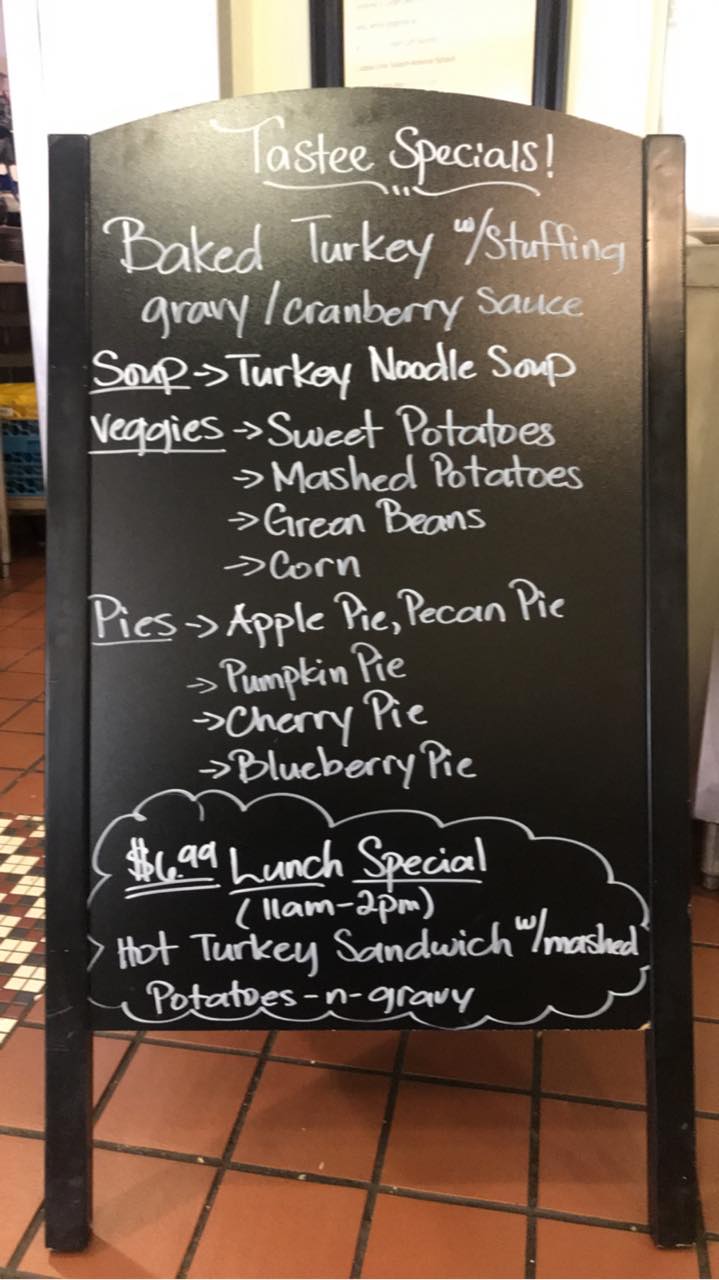 Tastee Specials!
Baked Turkey w/Stuffing
gravy/cranberry Sauce
Soup → Turkey Noodle Soup
Veggies → Sweet Potatoes
→ Mashed Potatoes
→ Green Beans
→ Corn
Pies → Apple Pie, Pecan Pie
→ Pumpkin Pie
→ Cherry Pie
→ Blueberry Pie
$6.99 Lunch Special
(11am-2pm)
> Hot Turkey Sandwich w/mashed
Potatoes-n-gravy